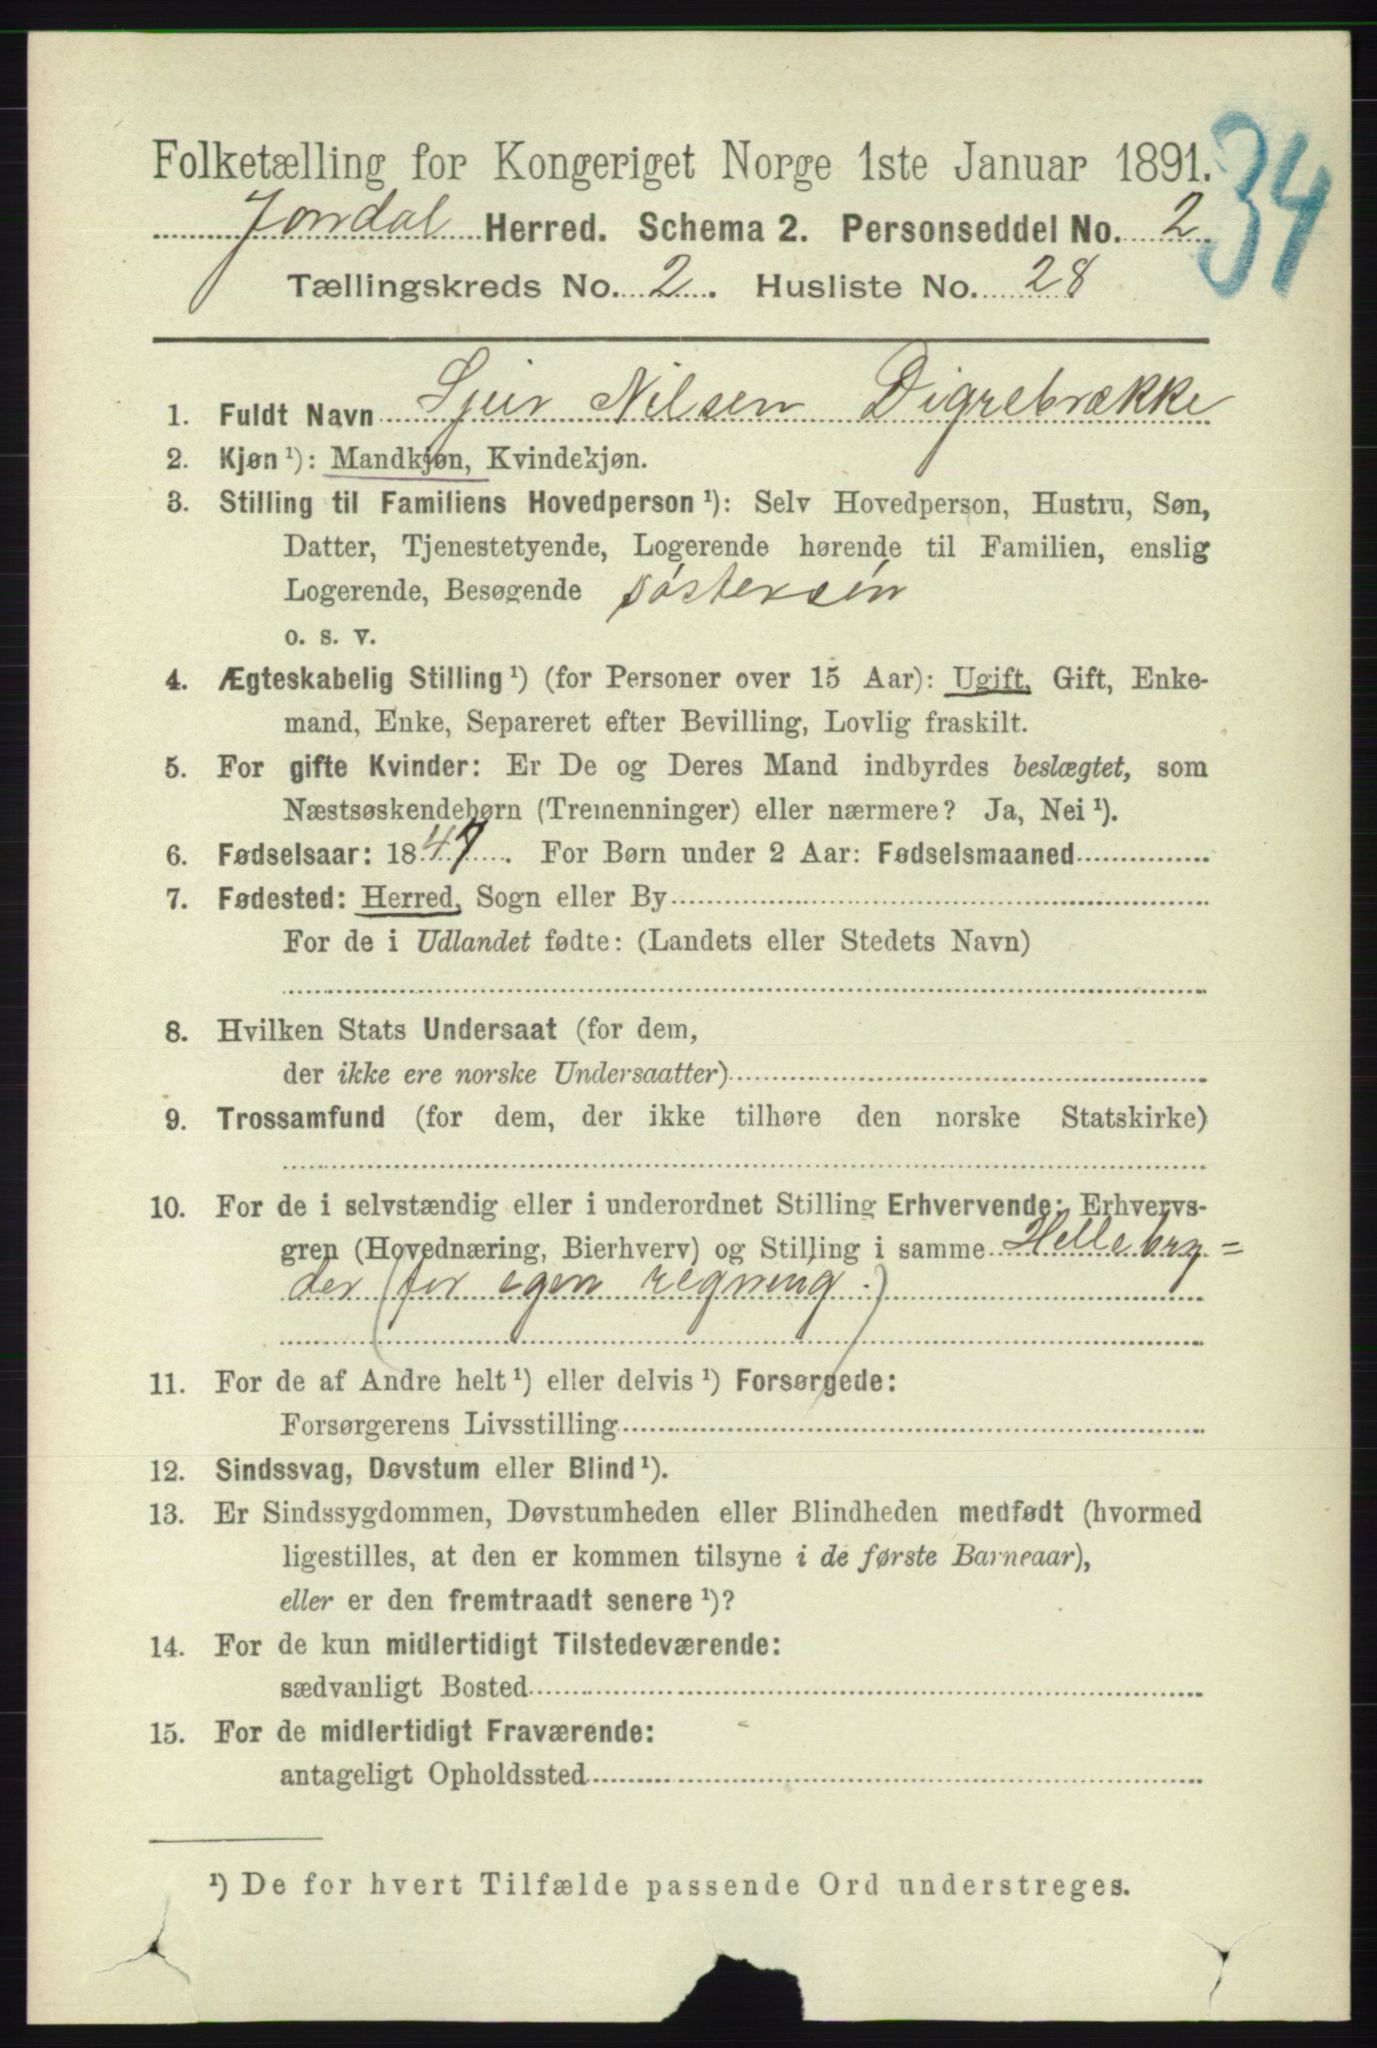 Folketælling for Kongeriget Norge 1ste Januar 1891.
34
Jondal Herred. Schema 2. Personseddel No. 2
Tællingskreds No. 2. Husliste No. 28
1. Fuldt Navn Sjur Nilsen Digrebrække
2. Kjøn ¹): Mandkjøn, Kvindekjøn.
3. Stilling til Familiens Hovedperson ¹): Selv Hovedperson, Hustru, Søn,
Datter, Tjenestetyende, Logerende hørende til Familien, enslig
Logerende, Besøgende søstersøn
o. s. v.
4. Ægteskabelig Stilling ¹) (for Personer over 15 Aar): Ugift, Gift, Enke-
mand, Enke, Separeret efter Bevilling, Lovlig fraskilt.
5. For gifte Kvinder: Er De og Deres Mand indbyrdes beslægtet, som
Næstsøskendebørn (Tremenninger) eller nærmere? Ja, Nei ¹).
6. Fødselsaar: 1847. For Børn under 2 Aar: Fødselsmaaned
7. Fødested: Herred, Sogn eller By
For de i Udlandet fødte: (Landets eller Stedets Navn)
8. Hvilken Stats Undersaat (for dem,
der ikke ere norske Undersaatter)
9. Trossamfund (for dem, der ikke tilhøre den norske Statskirke)
10. For de i selvstændig eller i underordnet Stilling Erhvervende: Erhvervs-
gren (Hovednæring, Bierhverv) og Stilling i samme Hellebry=
der (for egen regning.)
11. For de af Andre helt ¹) eller delvis ¹) Forsørgede:
Forsørgerens Livsstilling
12. Sindssvag, Døvstum eller Blind ¹).
13. Er Sindssygdommen, Døvstumheden eller Blindheden medfødt (hvormed
ligestilles, at den er kommen tilsyne i de første Barneaar),
eller er den fremtraadt senere ¹)?
14. For de kun midlertidigt Tilstedeværende:
sædvanligt Bosted
15. For de midlertidigt Fraværende:
antageligt Opholdssted
¹) De for hvert Tilfælde passende Ord understreges.